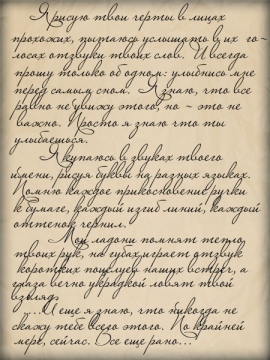 Я рисую твои черты в лицах
прохожих, пытаюсь услышать в их го-
лосах отзвуки твоих слов. И всегда
прошу только об одном: улыбнись мне
перед самым сном. Я знаю, что все
равно не увижу этого, но - это не
важно. Просто я знаю что ты
улыбаешься.
Я купаюсь в звуках твоего
имени, рисуя буквы на разных языках.
Помню каждое прикосновение ручки
к бумаге, каждый изгиб линий, каждый
оттенок чернил.
Мои ладони помнят тепло
твоих рук, на губах играет отзвук
коротких поцелуев наших встреч, а
глаза вечно украдкой ловят твой
взгляд.
...И еще я знаю, что никогда не
скажу тебе всего этого. По крайней
мере, сейчас. Все еще рано...